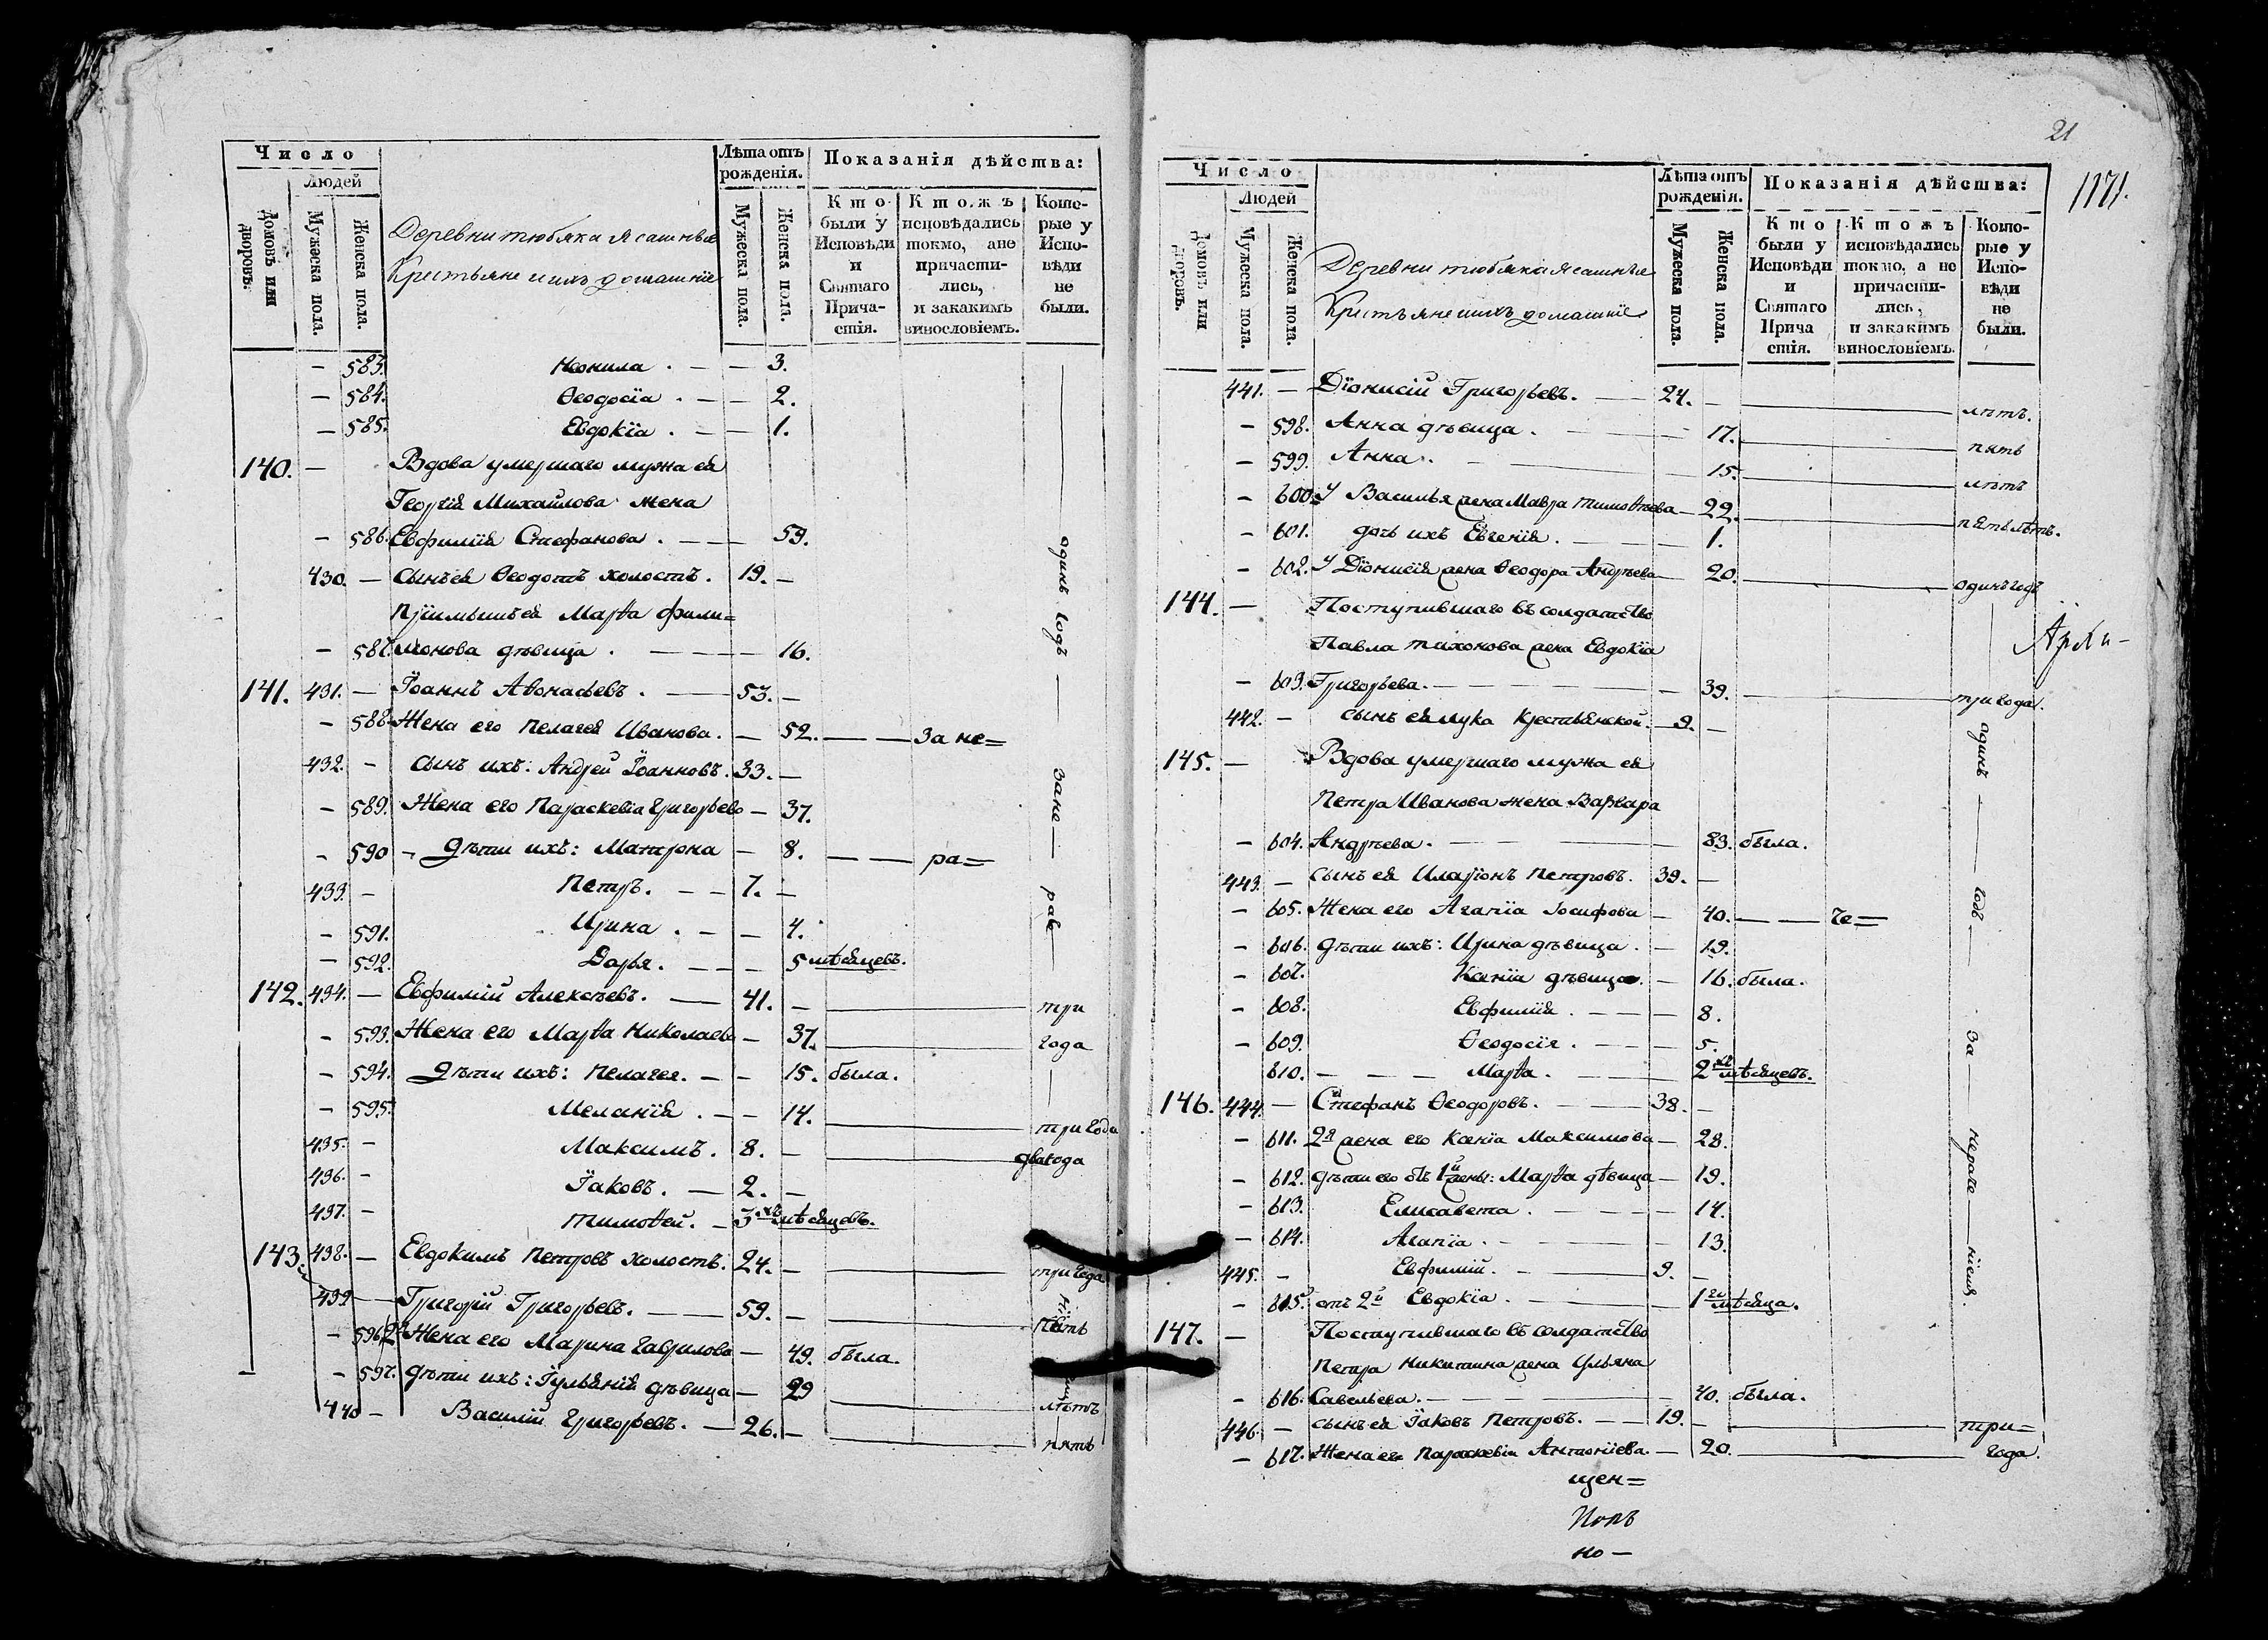 Число
Людей
Домовъ или дворовъ.
Мужеска пола.
Женска пола.
Деревни тюбяка ясашные
Крестьяне и ихъ домашніе
Лѣта отъ рожденія.
Мужеска пола.
Женска пола.
Показанія дѣйства:
Кто были у Исповѣди и Святаго Причастія.
Ктожъ исповѣдались токмо, а не причастились, и закакимъ винословіемъ.
Которые у Исповѣди не были.
— 583. Неонила . — — 3.
— 584. Ѳеодосіа . — — 2.
— 585. Евдокїа . — — 1.
140. — Вдова умершаго мужа ея
Георгія Михайлова жена
— 586. Евфимїя Стефанова . — — 59.
430. — Сынъ ея Ѳеодотъ холостъ . 19. —
Прїимышъ ея Марѳа Фили=
— 587. монова дѣвица . — — — 16.
141. 431. — Їоаннъ Аѳонасьевъ . — 53. —
— 588. Жена его Пелагея Иванова . — 52. — — За не=
432. — Сынъ ихъ: Андрей Їоанновъ . 33. —
— 589. Жена его Параскевіа Григорьево — 37.
— 590 — Дѣти ихъ: Матрона — 8. — — ра=
433. — Петръ . — — 7. —
— 591. Ирина . — — 4.
— 592. Дарья . — — — 5 мѣсяцевъ.
один годъ — Зане — раѣ
142. 434. — Евфимїй Алексѣевъ . — 41. — три
— 593. Жена его Марѳа Николаева — 37. года
— 594. Дѣти ихъ: Пелагея . — — 15. была .
— 595. Меланїя . — — 14. три года
435. — Максимъ . 8. — два года
436. — Їаковъ . — 2. —
437. — Тимоѳей . — 3хъ мѣсяцевъ.
143. 438. — Евдокимъ Петровъ холостъ . 24. — три года
439 — Григорїй Григорьевъ . — 59. — пять
— 596. 2я Жена его Марина Гаврилова — 49. была .
— 597. Дѣти ихъ: Їулїянїя дѣвица — 29 лѣтъ
440 — Василїй Григорьевъ . — 26. — пять
21
1171.
Число
Людей
Домовъ или дворовъ.
Мужеска пола.
Женска пола.
Деревни тюбяка ясашные
Крестьяне и ихъ домашніе
Лѣта отъ рожденія.
Мужеска пола.
Женска пола.
Показанія дѣйства:
Кто были у Исповѣди и Святаго Причастія.
Ктожъ исповѣдались токмо, а не причастились, и закакимъ винословіемъ.
Которые у Исповѣди не были.
441. — Дїонисїй Григорьевъ . — 24. — лѣтъ .
— 598. Анна дѣвица . — — 17. пять
— 599. Анна . — — 15. лѣтъ
— 600. У Василья жена Мавра Тимоѳѣева — 22. пять лѣтъ .
— 601. дочь ихъ Евгенїя . — — 1.
— 602. У Дїонисїя жена Ѳеодора Андрѣева — 20. одинъ годъ
144. — Поступившаго въ солдатство
Павла Тихонова жена Евдокїа
— 603. Григорьева . — — — 39. три года .
442. — Сынъ ея Лука Крестьянской . — 9. —
Архи-
145. — Вдова умершаго мужа ея
Петра Иванова жена Варвара
— 604. Андрѣева . — — — 83. была .
443. — Сынъ ея Иларїонъ Петровъ . 39. —
— 605. Жена его Агапїа Їосифова — 40. — — че=
— 606. Дѣти ихъ: Ирина дѣвица . — 19.
— 607. Ксенїа дѣвица . — 16. была .
— 608. Евфимїя . — — 8.
— 609. Ѳеодосїя . — — 5.
610. — — — Марѳа . — — 2хъ мѣсяцевъ.
один — годъ — За — нераче — нїемъ .
146. 444. — Стефанъ Ѳеодоровъ . — 38. —
— 611. 2я жена его Ксенїа Максимова — 28.
— 612. Дѣти его отъ 1й жены: Марѳа дѣвица — 19.
— 613. Елисавета . — — 14.
— 614. Агапїа . — — 13.
445. — Евфимїй . — — 9. —
— 615. отъ 2й Евдокїа . — — 1го мѣсяца .
147. — Поступившаго въ солдатство
Петра Никитина жена Ульяна
— 616. Савельева . — — — 40. была .
446. — Сынъ ея Їаковъ Петровъ . — — 19. — три=
— 617. Жена его Параскевїа Антонїева . — 20. года .
щен=
Попъ
но —